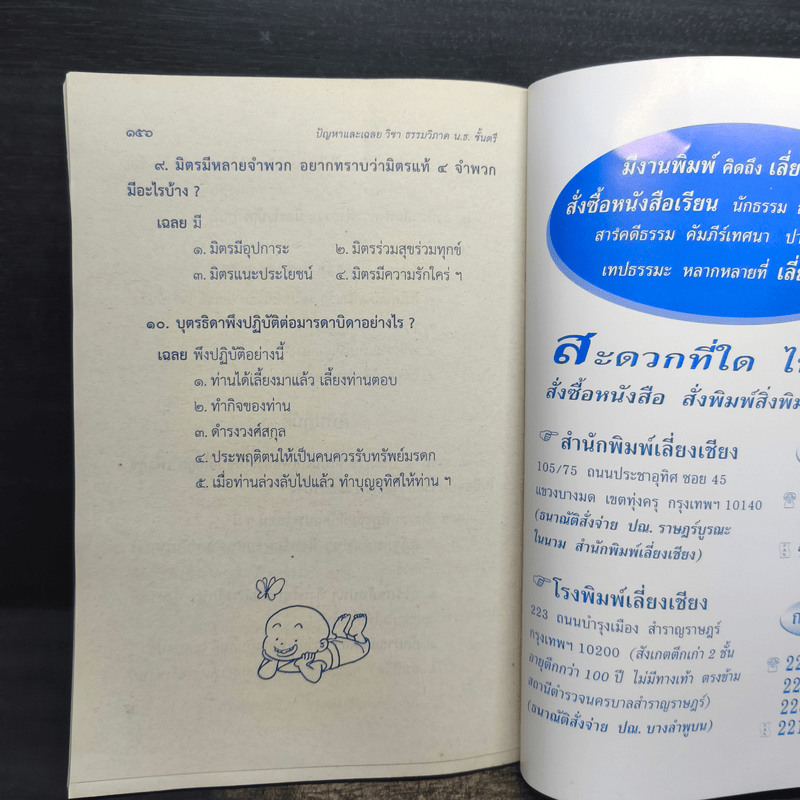 ๑๕๖
ปัญหาและเฉลย วิชา ธรรมวิภาค น.ธ. ชั้นตรี
๙. มิตรมีหลายจำพวก อยากทราบว่ามิตรแท้ ๔ จำพวก
มีอะไรบ้าง ?
เฉลย มี
๑. มิตรมีอุปการะ ๒. มิตรร่วมสุขร่วมทุกข์
๓. มิตรแนะประโยชน์ ๔. มิตรมีความรักใคร่ ฯ
๑๐. บุตรธิดาพึงปฏิบัติต่อมารดาบิดาอย่างไร ?
เฉลย พึงปฏิบัติอย่างนี้
๑. ท่านได้เลี้ยงมาแล้ว เลี้ยงท่านตอบ
๒. ทำกิจของท่าน
๓. ดำรงวงศ์สกุล
๔. ประพฤติตนให้เป็นคนควรรับทรัพย์มรดก
๕. เมื่อท่านล่วงลับไปแล้ว ทำบุญอุทิศให้ท่าน ฯ
มีงานพิมพ์ คิดถึง เลี่ย
สั่งซื้อหนังสือเรียน นักธรรม
สารคดีธรรม คัมภีร์เทศนา
เทปธรรมะ หลากหลายที่ เลี่
สะดวกที่ใด
สั่งซื้อหนังสือ สั่งพิมพ์สิ่งพิม
สำนักพิมพ์เลี่ยงเชียง
105/75 ถนนประชาอุทิศ ซอย 45
แขวงบางมด เขตทุ่งครุ กรุงเทพฯ 10140
(ธนาณัติสั่งจ่าย ปณ. ราษฎร์บูรณะ
ในนาม สำนักพิมพ์เลี่ยงเชียง)
โรงพิมพ์เลี่ยงเชียง
223 ถนนบำรุงเมือง สำราญราษฎร์
กรุงเทพฯ 10200 (สังเกตตึกเก่า 2 ชั้น
อายุตึกกว่า 100 ปี ไม่มีทางเท้า ตรงข้าม
สถานีตำรวจนครบาลสำราญราษฎร์)
(ธนาณัติสั่งจ่าย ปณ. บางลำพูบน)
22
22
221